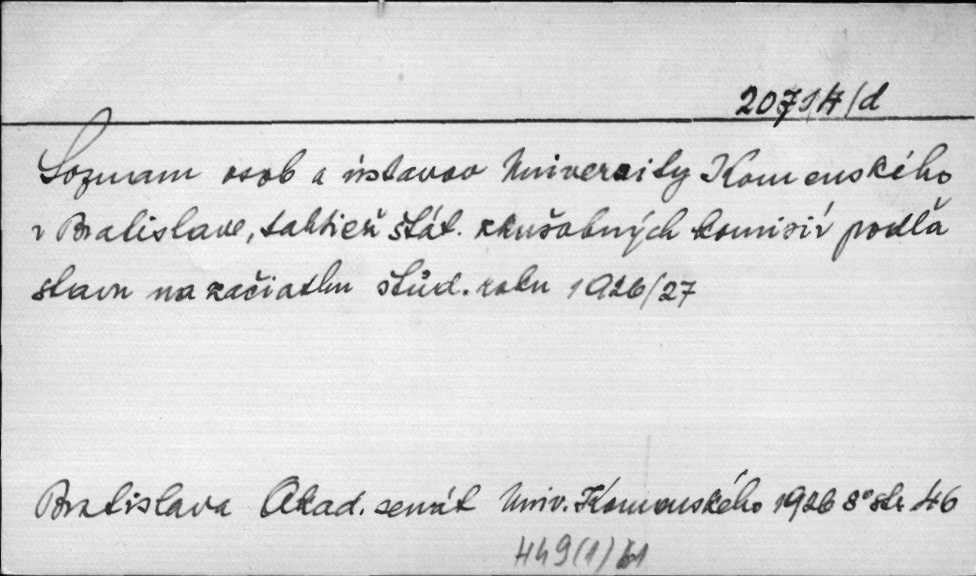 2071/H/d
Soznam osob a ústavov Univerzity Komenského
v Bratislave, taktiež štát. zkušobných komisií podľa
stavu na začiatku štúd. roku 1926/27
Bratislava Akad. senát Univ. Komenského 1926 8° str. 46
449(1) 61